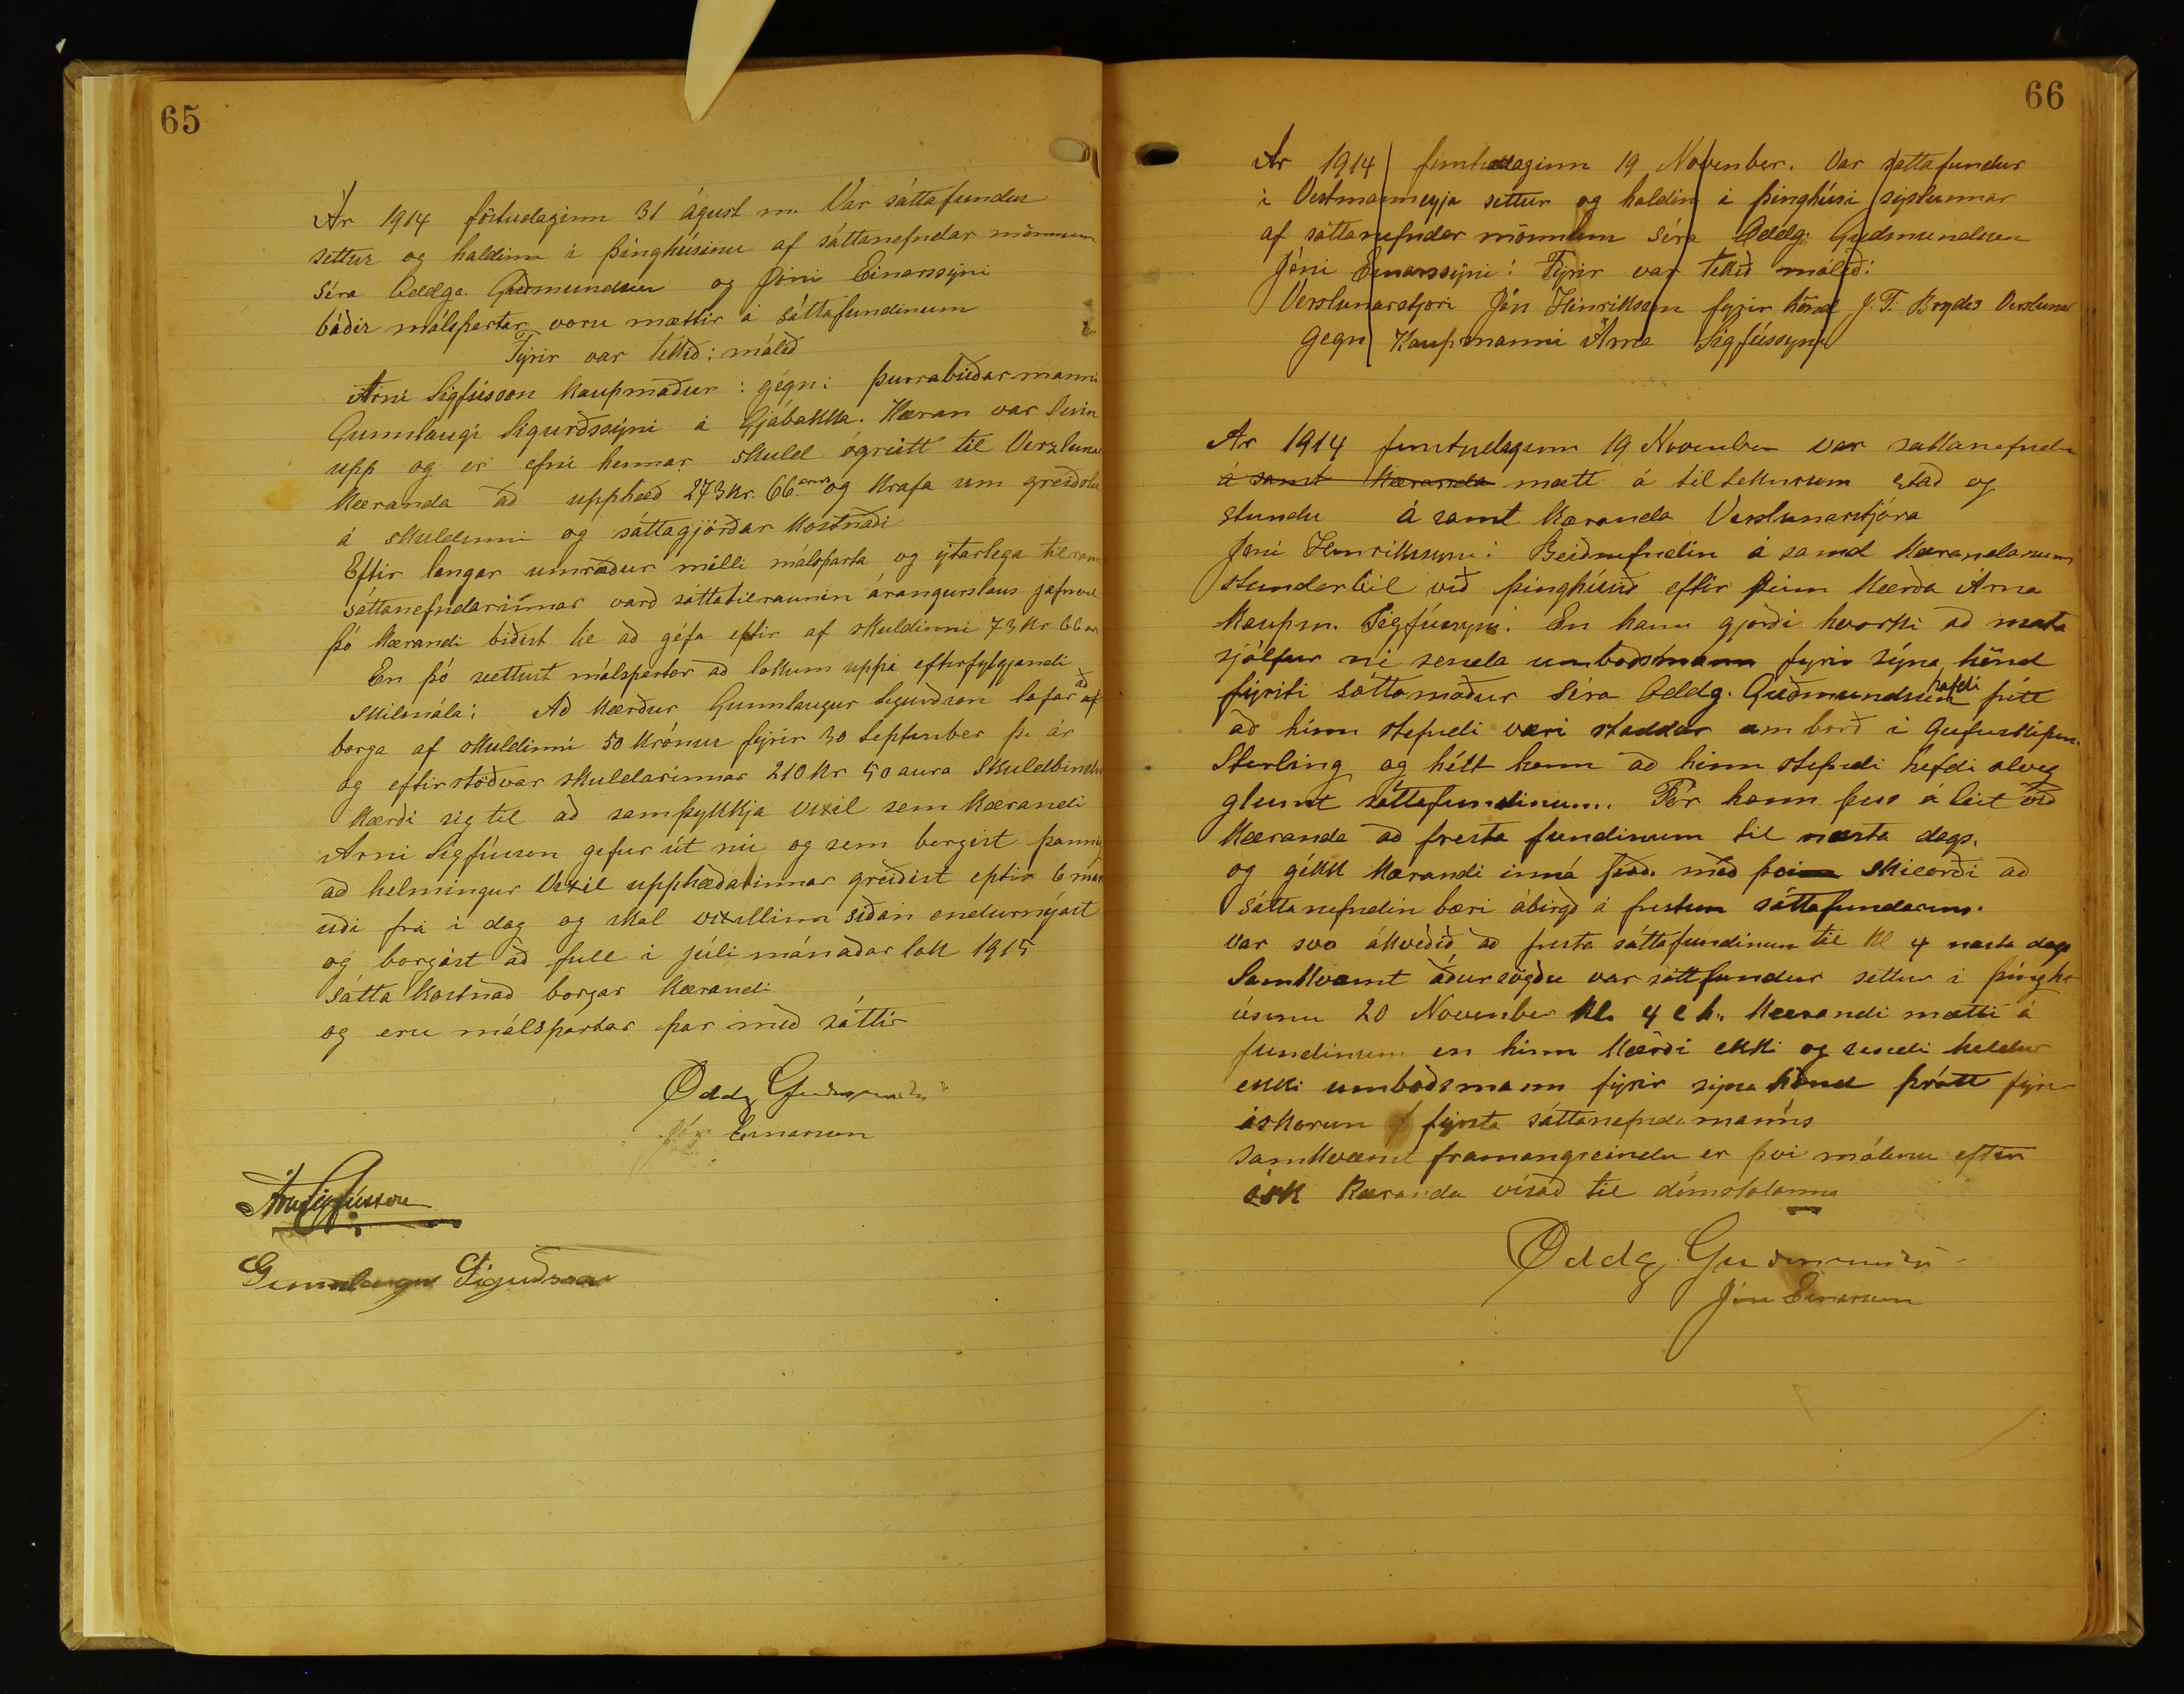 65
Ár 1914 föstudaginn 31 ágúst m. Var sáttafundur
settur og haldinn í þinghúsinu af sáttanefndar mönnum
Séra Oddge. Guðmundsen og Jóni Einarssýni
báðir málspartar voru mættir á sáttafundinum
Fýrir var tekið: málið
Árni Sigfússon kaupmaður: gégn: þurrabúðarmanni
Gunnlaugi Sigurðssýni á Gjábakka. Kæran var lesin
upp og er efni hennar skuld ógreitt til Verzlunar
kæranda að upphæð 273 kr. 66 aura og krafa um greiðslu
á skuldinni og sáttagjörðar kostnaði
Eftir langar umræður milli málsparta og ýtarlega tilraun
sáttanefndarinnar varð sáttatilraunin árangurslaus jafnvel
þó kærandi biðist til að géfa eftir af skuldinni 73 kr 66 au
En þó sættust málspartar að lokum uppá eftirfylgjandi
skilmála: Að kærður Gunnlaugur Sigurðsson lofar að
borga af skuldinni 50 krónur fýrir 30 September þ. ár
og eftirstöðvar skuldarinnar 210 kr 50 aura skuldbindur
kærði sig til að samþykkja víxil sem kærandi
Árni Sigfússon gefur út nú og sem borgist þannig
að helmingur víxil upphæðarinnar greiðist eptir 6 mán
uði frá í dag og skal víxillinn síðan endurnýast
og borgast að full í júlí mánaðar lok 1915
Sátta kostnað borgar kærandi
og eru málspartar þar með sáttir
Oddg Guðmundsen
Jón Einarsson
Árni Sigfússon
Gunnlaugur Sigurðsson
66
Ár 1914 fimtudaginn 19 November. Var sáttafundur
í Vestmanneyja settur og haldin í þinghúsi sýslunnar
af sáttanefndar mönnum Séra Oddg. Guðmundsen
Jóni Einarssýni: Fýrir var tekið málið:
Verslunarstjóri Jón Hinriksson fyrir hönd J. T. Brydes Verslunar
gegn Kaupmanni Árna Sigfússyni
Ár 1914 fimtudaginn 19 November var sáttanefndin
á samt kæranda mætt á tilteknum stað og
stundu á samt kæranda Verslunarstjóra
Jóni Hinrikssyni: Beið nefndin á samt kærandanum
stundarbil við þinghúsið eftir þeim kærða Árna
kaupm. Sigfússyni. En hann gjörði hvorki að mæta
sjálfur né senda umboðsmann fyrir sýna hönd
fýrsti sáttamaður Séra Oddg. Guðmundsen hafði frétt
að hinn stefndi væri staddur um borð í gufuskipinu
Sterling og hélt hann að hinn stefndi hefði alveg
glemt sáttafundinum. Fór hann þess á leit við
kæranda að fresta fundinum til næsta dags.
og gékk kærandi inná það með þeim skilorði að
sáttanefndin bæri ábirgð á frestun sáttafundarins.
var svo ákvéðið að fresta sáttafundinum til kl 4 næsta dags
Samkvæmt áðursögðu var sáttfundur settur í þingh-
úsinu 20 November kl. 4 e h. kærandi mætti á
fundinum en hinn kærði ekki og sendi heldur
ekki umboðsmann fýrir sýna hönd þrátt fýrir
áskorun fýrsta sáttanefndamanns
samkvæmt framangreindu er því málinu eftir
ósk kæranda vísað til dómstolanna
Oddg. Guðmundsen
Jón Einarsson